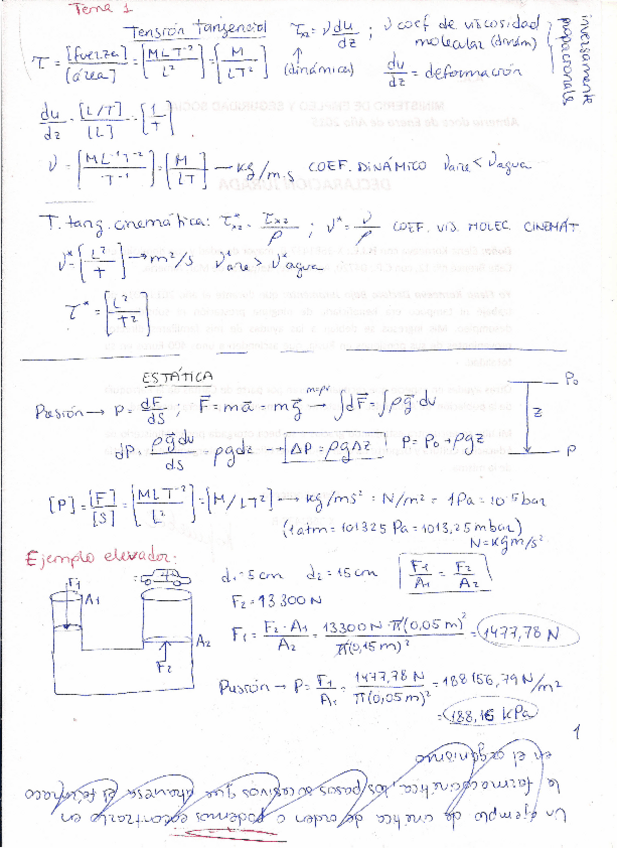 Tema 1
Tensión tangencial
τxz = ν du/dz ; ν coef de viscosidad molecular (dinám)
inversamente proporcionales
τ = [fuerza]/[área] = [MLT⁻²/L²] = [M/LT²]
(dinámica)
du/dz = deformación
du/dz = [L/T]/[L] = [1/T]
ν = [ML⁻¹T⁻²/T⁻¹] = [M/LT] — kg/m.s COEF. DINÁMICO νaire < νagua
T. tang. cinemática: τ*xz = τxz/ρ ; ν* = ν/ρ COEF. VIS. MOLEC. CINEMÁT
ν* = [L²/T] → m²/s ν*aire > ν*agua
τ* = [L²/T²]
ESTÁTICA
Presión → P = dF/dS ; F = ma = mg → ∫dF = ∫ρg dv
m=ρv
dP = ρg dv/dS = ρgdz → ΔP = ρgΔz P = P₀ + ρgz
P₀
z
P
[P] = [F]/[S] = [MLT⁻²/L²] = [M/LT²] → kg/ms² = N/m² = 1Pa = 10⁻⁵bar
(1atm = 101325 Pa = 1013,25 mbar)
N = kgm/s²
Ejemplo elevador:
F₁
A₁
A₂
F₂
d₁ = 5cm d₂ = 15cm F₁/A₁ = F₂/A₂
F₂ = 13300N
F₁ = F₂·A₁/A₂ = 13300N·π(0,05m)²/π(0,15m)² = 1477,78 N
Presión → P = F₁/A₁ = 1477,78N/π(0,05m)² = 188156,79 N/m²
= 188,16 kPa
1
Un ejemplo de cinética de orden 0 podemos encontrarlo en
la farmacocinética, los pasos sucesivos que atraviesa el fármaco
en el organismo